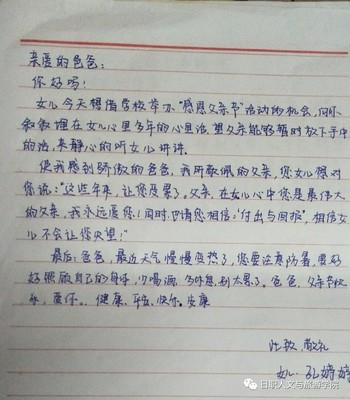 亲爱的爸爸:
你好吗!
女儿今天想借学校举办"感恩父亲节"活动的机会,向你
叙叙埋在女儿心里多年的心里话,望父亲能够暂时放下手中
的活,来静心的听女儿讲讲.
使我感到骄傲的爸爸,我所敬佩的父亲,您女儿得对
您说:"这些年来,让您受累了,父亲,在女儿心中您是最伟大
的父亲,我永远爱您!同时,也请您相信:"付出与回报",相信女
儿不会让您失望!"
最后:爸爸,最近天气慢慢变热了,您要注意防暑,更好
好照顾自己的身体,少喝酒,多休息,别太累了。爸爸,父亲节快
乐,爱你..健康,平安,快乐。安康
此致 敬礼
女儿:孔婷婷
日职人文与旅游学院